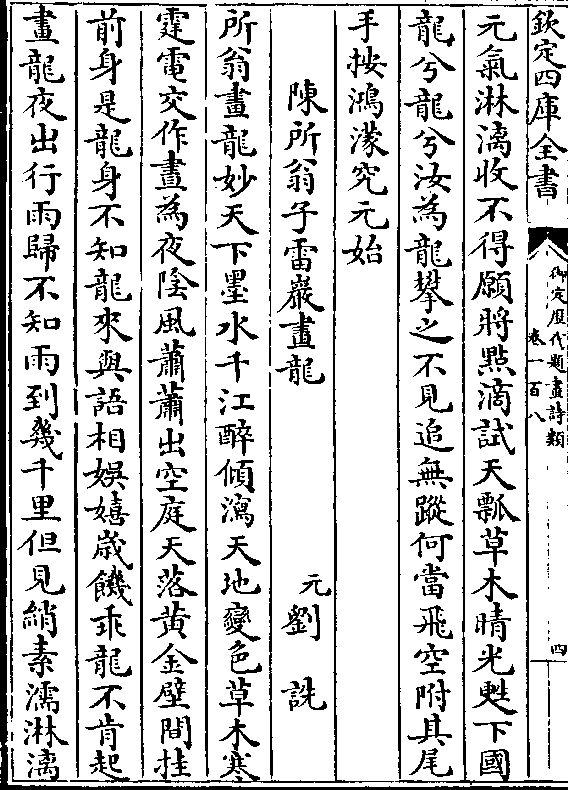 欽定四庫全書
御定歷代題畫詩類
卷一百八
四
元氣淋漓收不得願將點滴試天瓢草木晴光甦下國
龍兮龍兮汝為龍攀之不見追無蹤何當飛空附其尾
手按鴻濛究元始
陳所翁子雷巖畫龍
元劉詵
所翁畫龍妙天下墨水千江醉傾瀉天地變色草木寒
霆電交作晝為夜陰風蕭蕭出空庭天落黃金壁間挂
前身是龍身不知龍來與語相娛嬉歲饑乖龍不肯起
畫龍夜出行雨歸不知雨到幾千里但見綃素濡淋漓